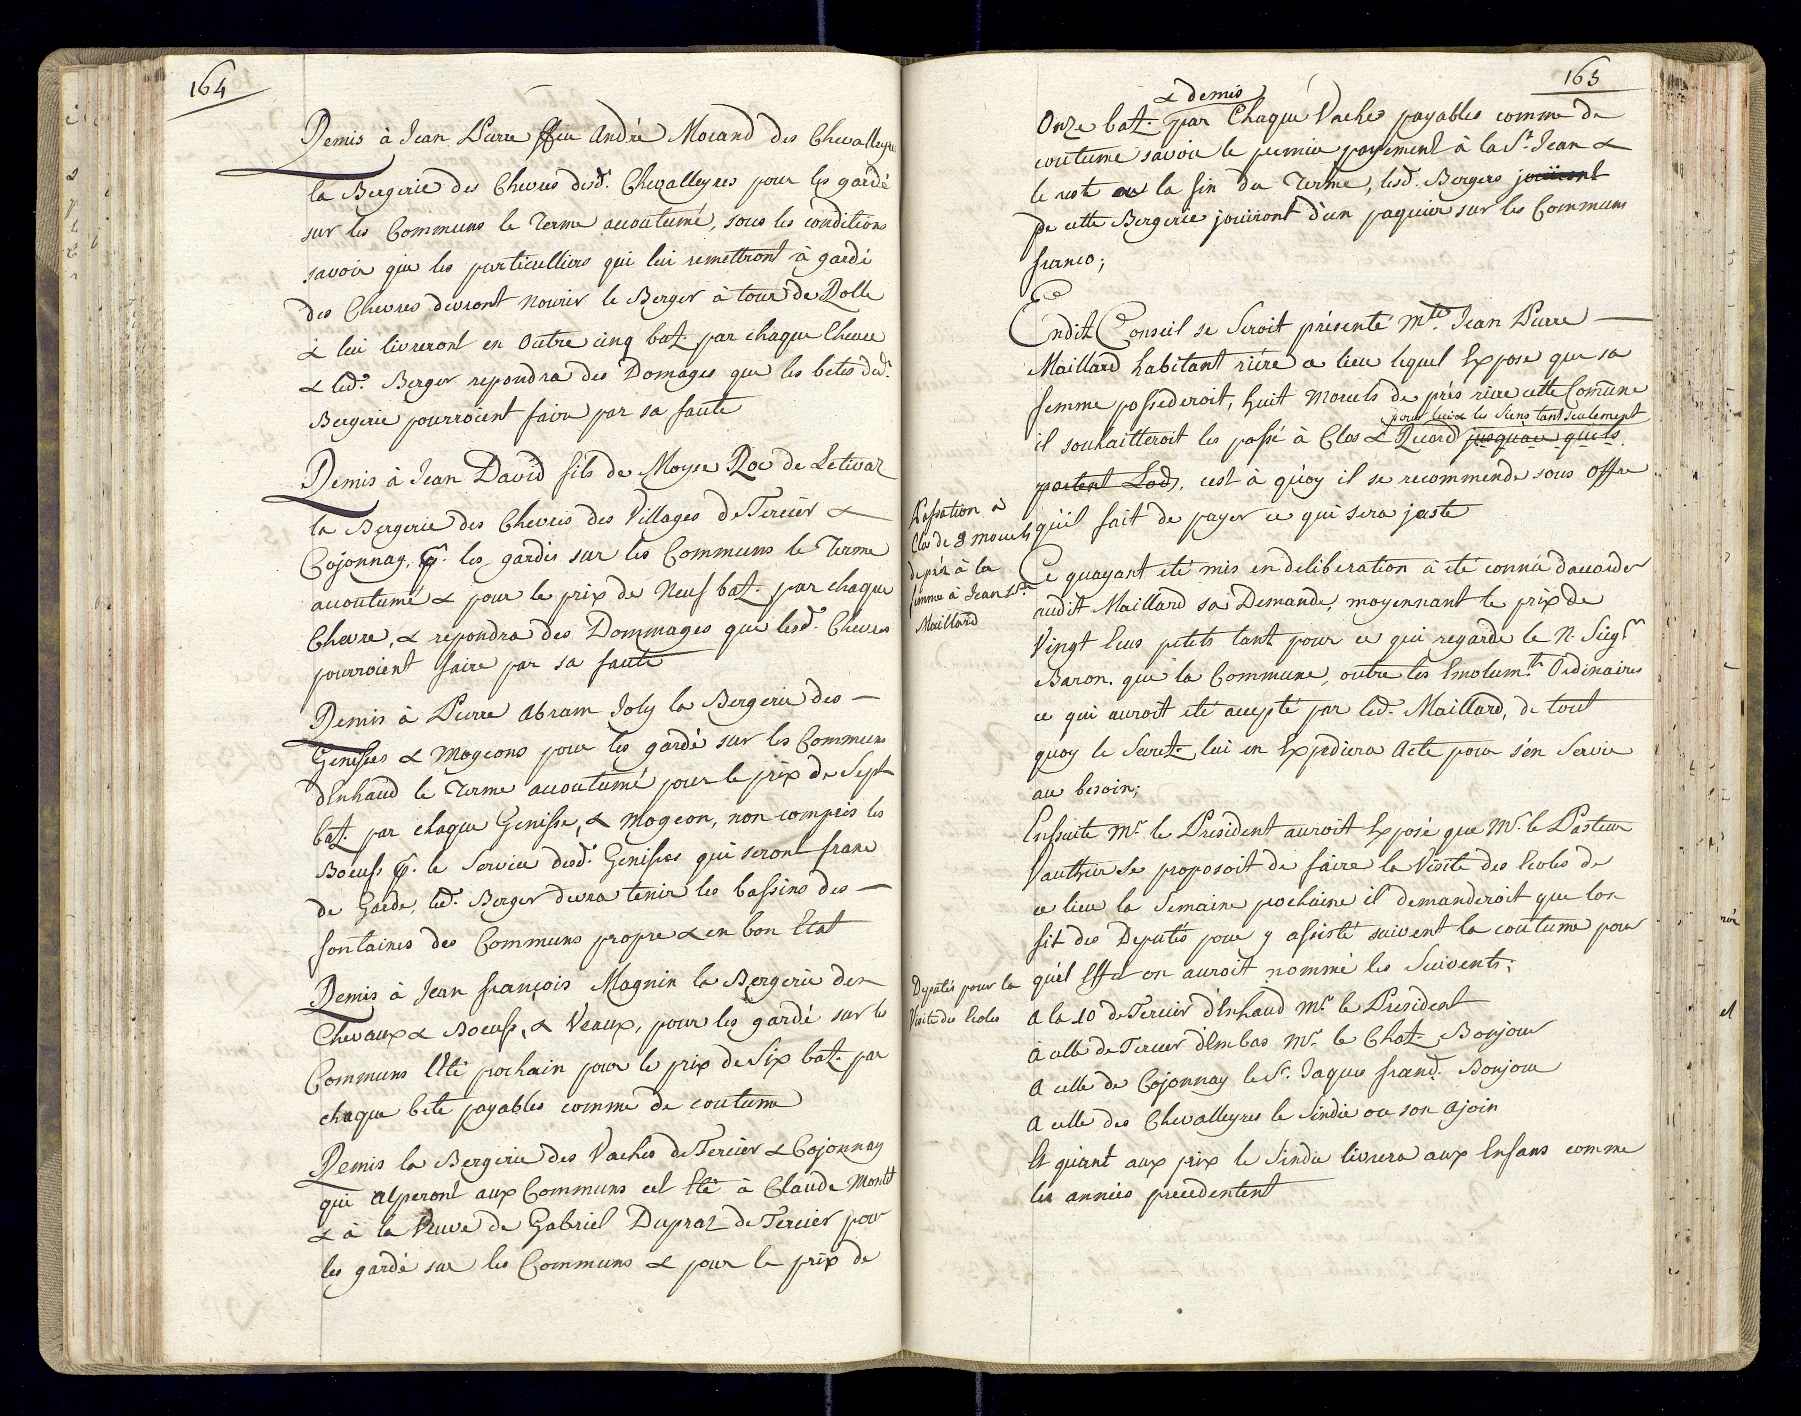 164
Remis à Jean Pierre ffeu André Morand des Chevalleyres
la Bergerie des Chevres desd. Chevalleyres pour les gardé
sur les Communs le Terme accoutumé, sous les conditions
savoir que les particulliers qui lui remettront à gardé
des Chevres devront nourir le Berger à tour de Rolle
& lui livreront en Outre cinq bat. par chaque Chevre
& led. Berger repondra des Domages que les betes de d.
Bergerie pourroient faire par sa faute
Remis à Jean David fils de Moyse Roc de Letivaz
la Bergerie des Chevres des Villages de Tercier &
Cojonnay, p. les gardés sur les Communs le Terme
accoutumé & pour le prix de Neuf bat. par chaque
Chevre, & repondra des Dommages que lesd. Chevres
pourroient faire par sa faute
Remis à Pierre Abram Joly la Bergerie des —
Genisses & Mogeons pour les gardé sur les Communs
dEnhaud le Terme accoutumé pour le prix de Sept
bat. par chaque Genisse, & Mogeon, non compris les
Boeufs p. le Service desd. Genisses qui seront franc
de Garde, led. Berger devra tenir les bassins des —
fontaines des Communs propre & en bon Etat
Remis à Jean françois Magnin la Bergerie des
Chevaux & Boeufs, & Veaux, pour les gardé sur les
Communs l'Eté prochain pour le prix de Six bat. par
chaque bete payables comme de coutume
Remis la Bergerie des Vaches de Tercier & Cojonnay
qui alperont aux Communs cet Eté à Claude Montet
& à la Veuve de Gabriel Dupraz de Tercier pour
les gardé sur les Communs & pour le prix de
165
& demis
Onze bat. par Chaque Vaches payables comme de
coutume savoir le premier payement à la St. Jean &
le rest a la fin du Terme, lesd. Bergers jouiront
de cette Bergerie jouiront d'un paquier sur les Communs
franco;
Endit Conseil se Seroit présenté Mtre. Jean Pierre —
Maillard habitant riére ce lieu lequel Expose que sa
femme possederoit, huit Morcels de prés riere cette Comune
pour lui & les Siens tant seulement
il souhaitteroit les passé à Clos & Record jusquau quils
portent Lod, cest à quoy il se recommende sous Offre
qu'il fait de payer ce qui sera juste
Passation à
Clos de 8 morcels
de prés à la
femme à Jean Pre
Maillard
Ce quayant eté mis en deliberation à eté connu d'accorder
audit Maillard sa Demande, moyennant le prix de
Vingt Ecus petits tant pour ce qui regarde le N. Seigr
Baron. que la Commune, outre les Emolumts. Ordinaires
ce qui auroit eté accepté par led. Maillard, de tout
quoy le Secret. lui en Expediera Acte pour s'en Servir
au besoin;
Ensuite Mr. le President auroit Exposé que Mr. le Pasteur
Vautier Se proposoit de faire la Visite des Ecoles de
ce lieu la Semaine prochaine il demanderoit que lon
fit des Deputés pour y assisté suivent la coutume pour
quel Effet on auroit nommé les Suivents;
Deputés pour la
Visite des Ecoles
A la 10 de Tercier d'Enhaud Mr. le President
à celle de Tercier d'Embas Mr. le Chat. Bonjour
a celle de Cojonnay le Sr. Jaques frand. Bonjour
a celle des Chevalleyres le Sindic ou son ajoin
Et quant aux prix le Sindic livrera aux Enfans comme
les années precedentent